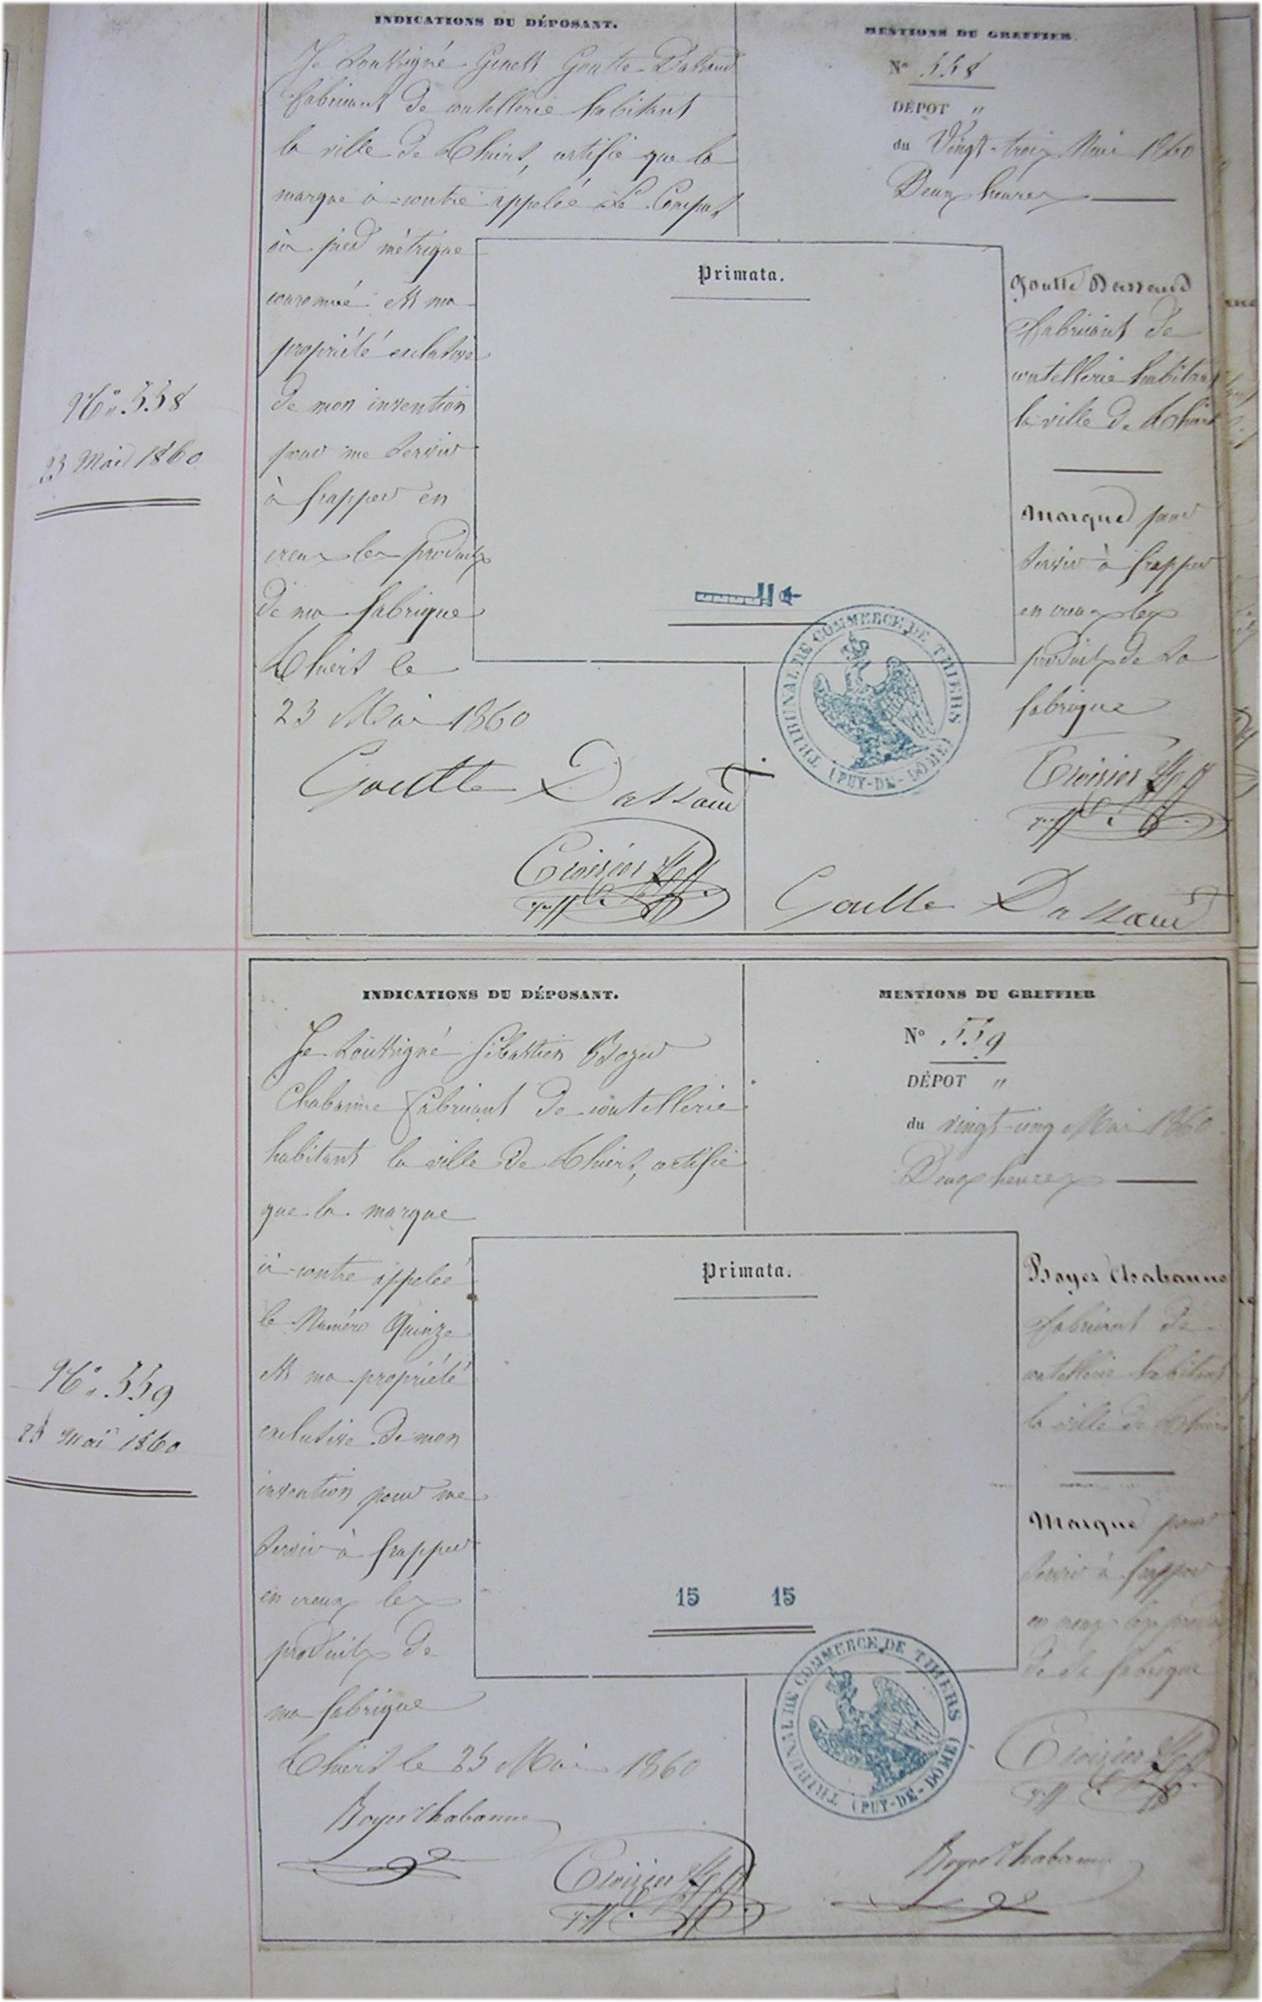 INDICATIONS DU DÉPOSANT.
Je soussigné Genest Goutte-Dassaud
fabricant de coutellerie habitant
la ville de Thiers, certifie que la
marque ci-contre appelée Le Compas
ou pied métrique
couronné est ma
propriété exclusive
de mon invention
pour me servir
à frapper en
creux les produits
de ma fabrique
Thiers le
23 Mai 1860
Goutte Dassaud
Croizier
MENTIONS DU GREFFIER
N° 558
DÉPOT "
du Vingt-trois Mai 1860
Deux heures
Primata.
Goutte Dassaud
fabricant de
coutellerie habitant
la ville de Thiers
Marque pour
servir à frapper
en creux les
produits de sa
fabrique
TRIBUNAL DE COMMERCE DE THIERS (PUY-DE-DOME)
Croizier
Goutte Dassaud
N° 558
23 Mai 1860
INDICATIONS DU DÉPOSANT.
Je soussigné Sébastien Boyer
Chabanne fabricant de coutellerie
habitant la ville de Thiers, certifie
que la marque
ci-contre appelée
le Numéro Quinze
est ma propriété
exclusive de mon
invention pour me
servir à frapper
en creux les
produits de
ma fabrique
Thiers le 25 Mai 1860
Boyer Chabanne
Croizier
MENTIONS DU GREFFIER
N° 559
DÉPOT "
du vingt-cinq Mai 1860
Deux heures
Primata.
15 15
Boyer Chabanne
fabricant de
coutellerie habitant
la ville de Thiers
Marque pour
servir à frapper
en creux les produits
de sa fabrique
TRIBUNAL DE COMMERCE DE THIERS (PUY-DE-DOME)
Croizier
Boyer Chabanne
N° 559
25 Mai 1860